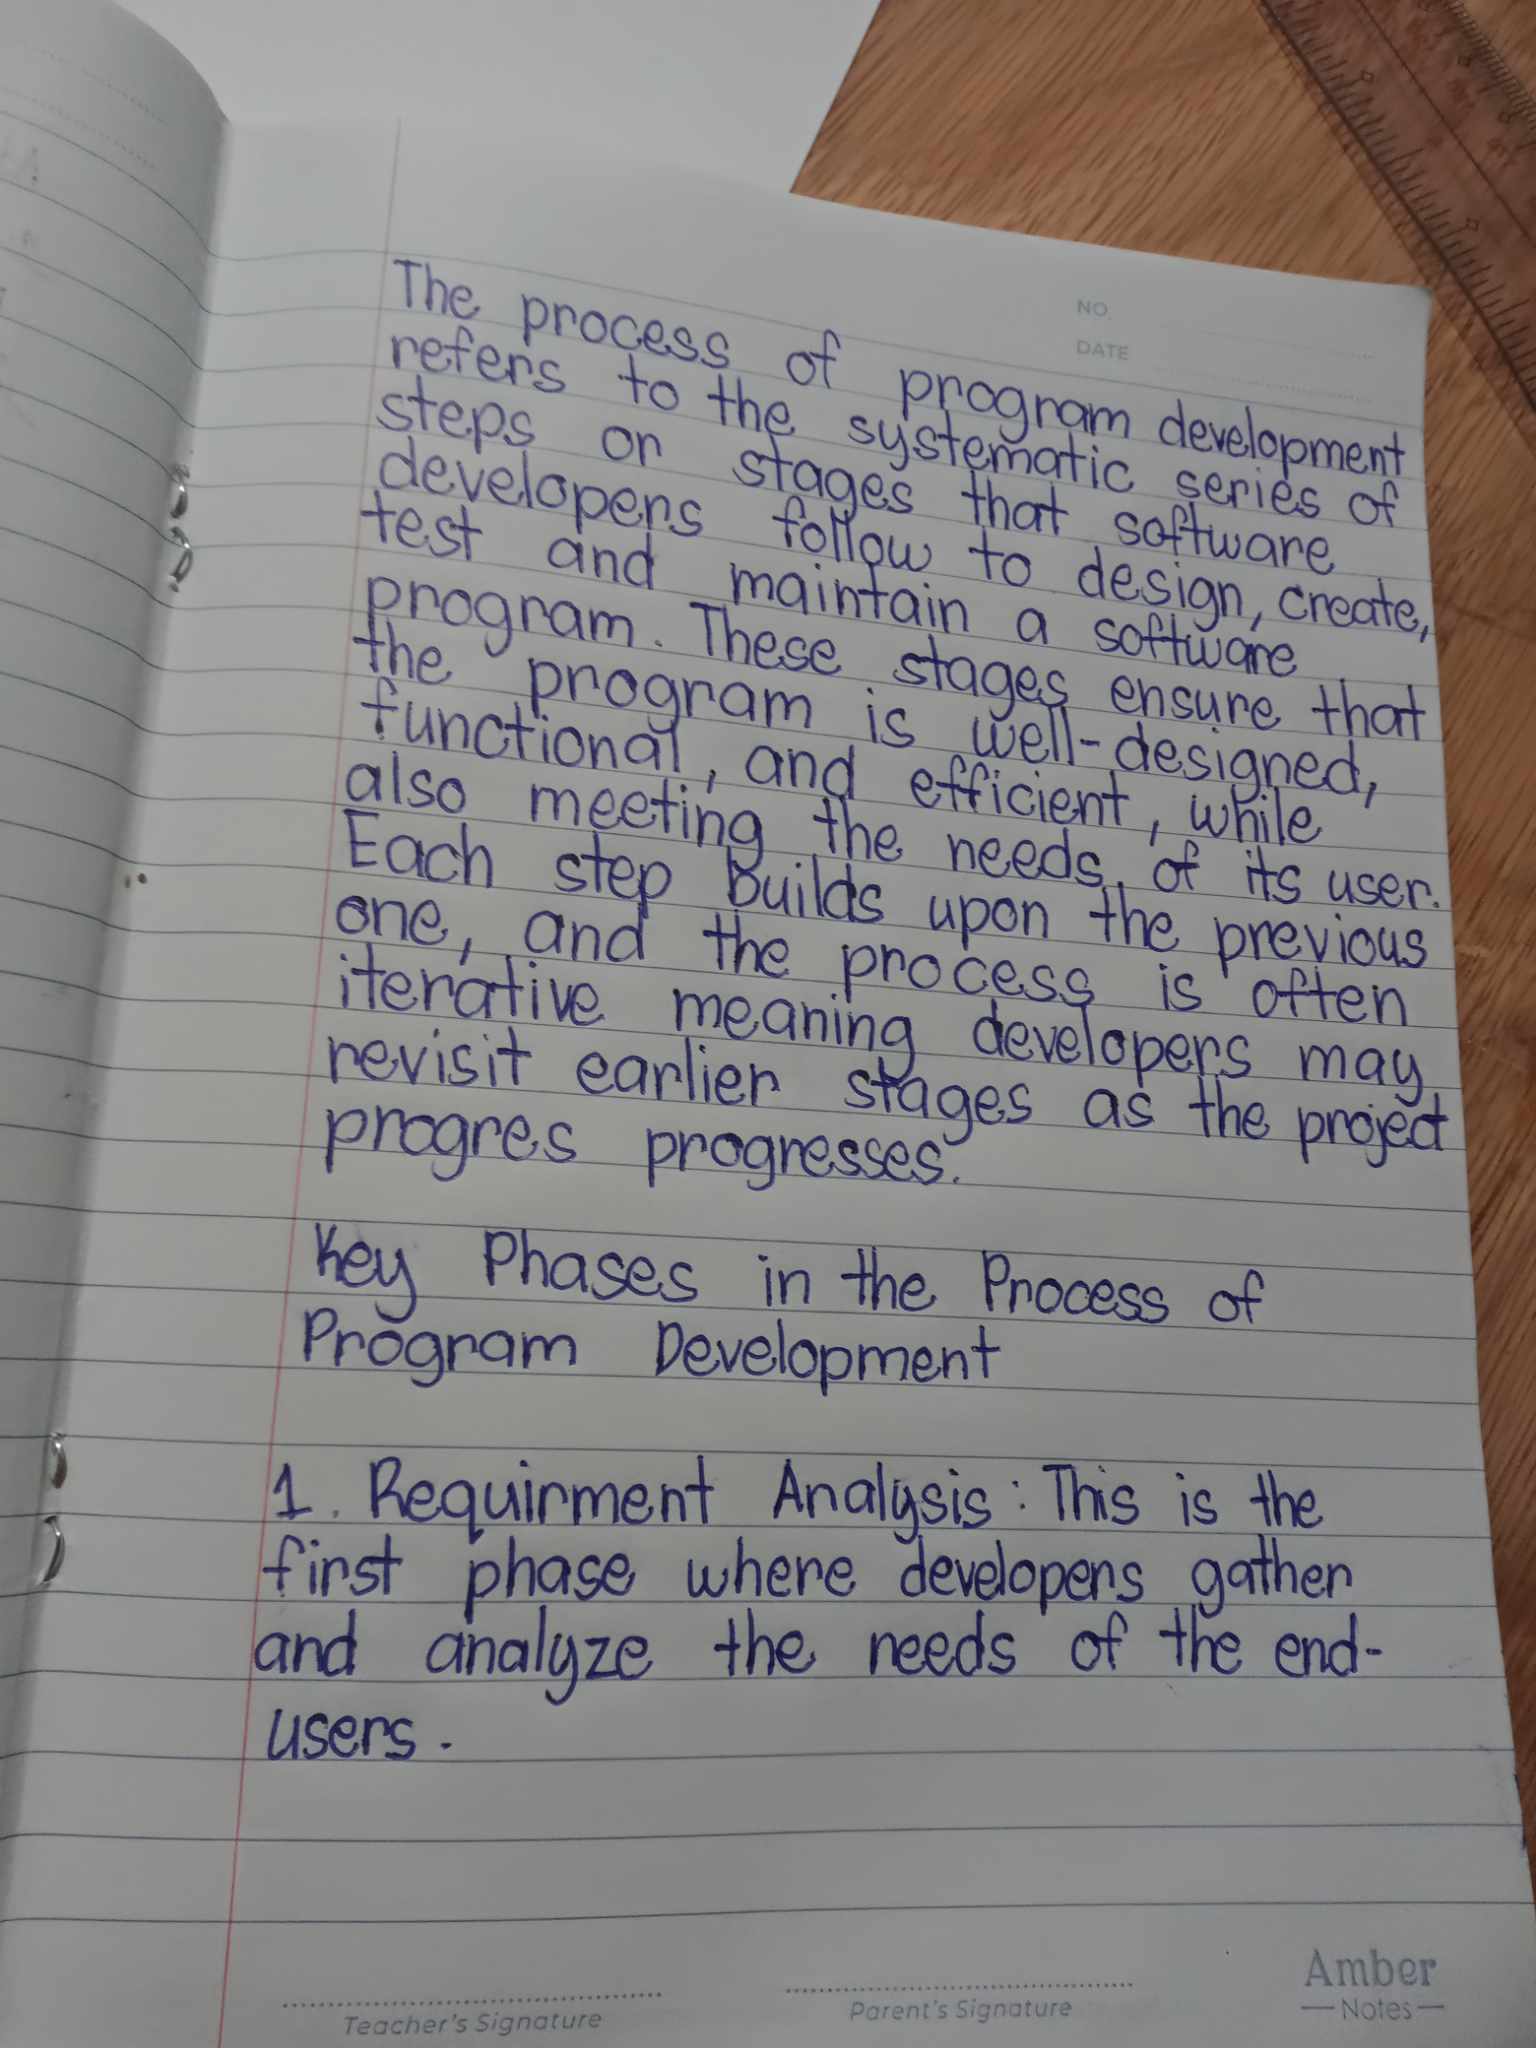 NO
DATE
The process of program development
refers to the systematic series of
steps or stages that software
developers follow to design, create,
test and maintain a software
program. These stages ensure that
the program is well-designed,
functional, and efficient, while
also meeting the needs of its user.
Each step builds upon the previous
one, and the process is often
iterative meaning developers may
revisit earlier stages as the project
progres progresses.
Key Phases in the Process of
Program Development
1. Requirment Analysis: This is the
first phase where developers gather
and analyze the needs of the end-
users.
Teacher's Signature
Parent's Signature
Amber
Notes